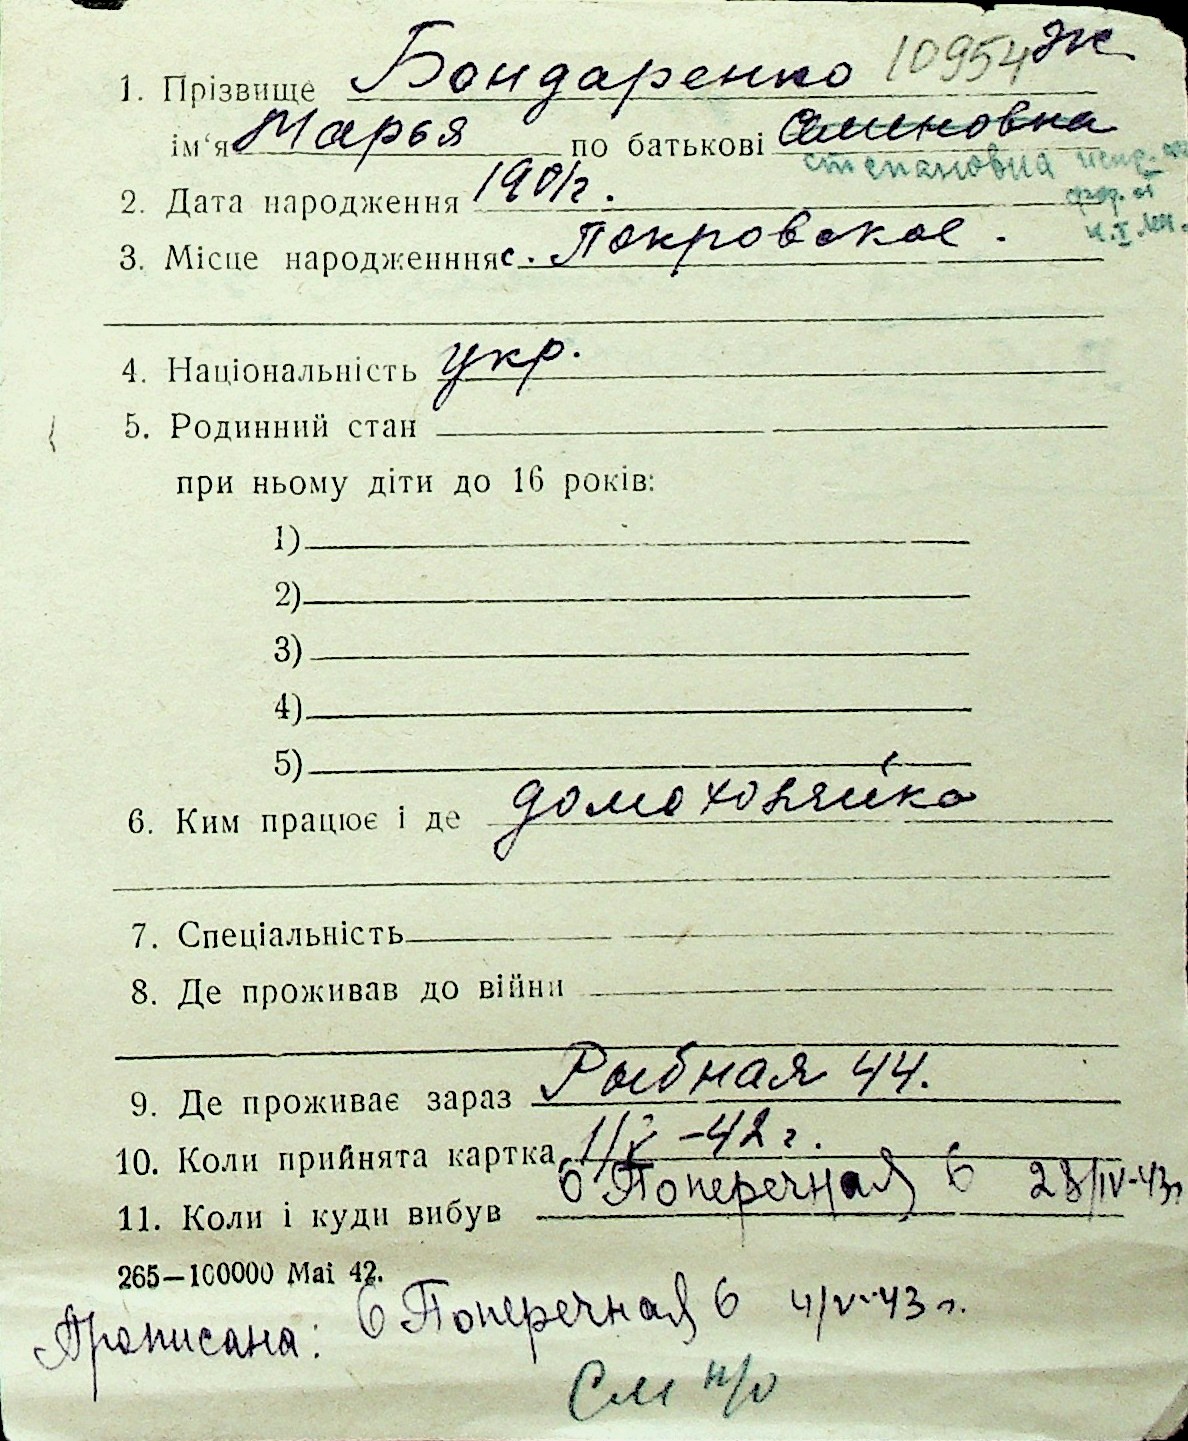 10954 Эк
1. Прізвище Бондаренко
ім'я Марья по батькові Семеновна
степановна испр.
2. Дата народження 1901г.
3. Місце народженння с. Покровское.
4. Національність укр.
5. Родинний стан
при ньому діти до 16 років:
1)
2)
3)
4)
5)
6. Ким працює і де домохозяйка
7. Спеціальність
8. Де проживав до війни
9. Де проживає зараз Рыбная 44.
10. Коли прийнята картка 1/X-42г.
11. Коли і куди вибув 6 Поперечная 6 28/IV-43г
265—100000 Mai 42.
Прописана: 6 Поперечная 6 4/V-43г.
См н/о